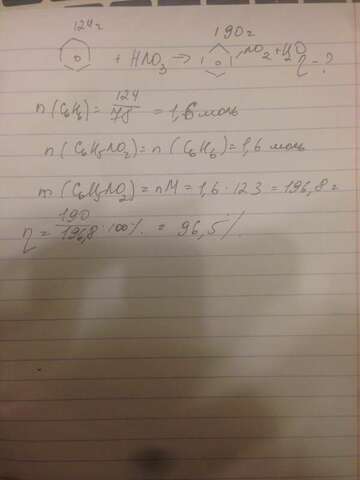 124г 190г
+ HNO₃ → NO₂ + H₂O η - ?
n (C₆H₆) = 124/78 = 1,6 моль
n (C₆H₅NO₂) = n (C₆H₆) = 1,6 моль
m (C₆H₅NO₂) = nM = 1,6 · 123 = 196,8 г
η = 190/196,8 · 100% = 96,5%.